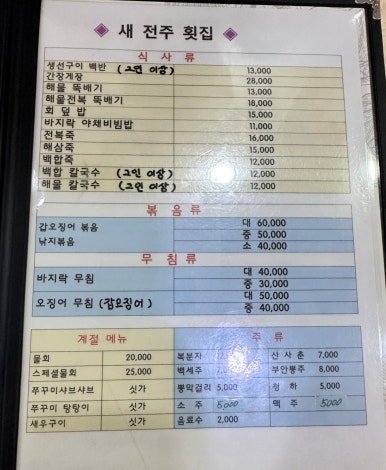 새 전주 횟집
식 사 류
생선구이 백반 (2인 이상) 13,000
간장게장 28,000
해물 뚝배기 13,000
해물전복 뚝배기 18,000
회 덮 밥 15,000
바지락 야채비빔밥 11,000
전복죽 16,000
해삼죽 15,000
백합죽 12,000
백합 칼국수 (2인 이상) 12,000
해물 칼국수 (2인 이상) 12,000
볶 음 류
갑오징어 볶음
낙지볶음
대 60,000
중 50,000
소 40,000
무 침 류
바지락 무침
대 40,000
중 30,000
오징어 무침 (갑오징어)
대 50,000
중 40,000
계절 메뉴
물회 20,000
스페셜물회 25,000
쭈꾸미샤브샤브 싯가
쭈꾸미 탕탕이 싯가
새우구이 싯가
주 류
복분자 산 사 춘 7,000
백세주 부안뽕주 8,000
뽕막걸리 5,000 청 하 5,000
소 주 5000 맥 주 5000
음료수 2,000